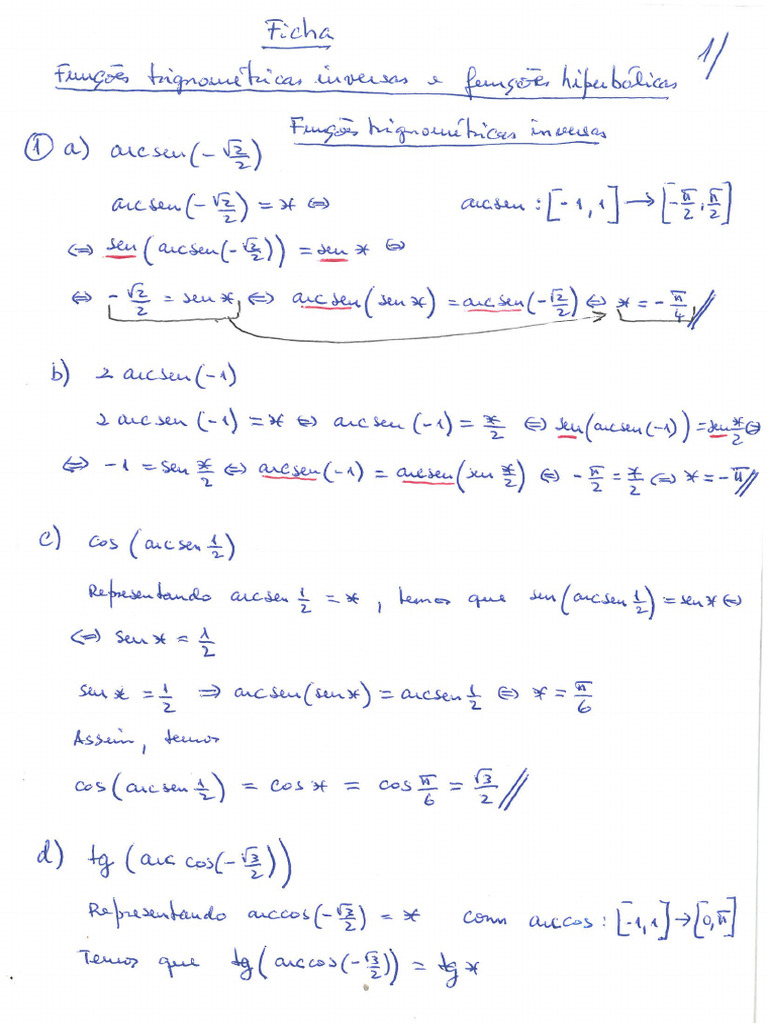 Ficha
1/
Funções trignométricas inversas e funções hiperbólicas
Funções trignométricas inversas
① a) arcsen(-√2/2)
arcsen(-√2/2) = x ⇔ arcsen : [-1, 1] → [-π/2, π/2]
⇔ sen(arcsen(-√2/2)) = sen x ⇔
⇔ -√2/2 = sen x ⇔ arcsen(sen x) = arcsen(-√2/2) ⇔ x = -π/4 //
b) 2 arcsen(-1)
2 arcsen(-1) = x ⇔ arcsen(-1) = x/2 ⇔ sen(arcsen(-1)) = sen x/2 ⇔
⇔ -1 = sen x/2 ⇔ arcsen(-1) = arcsen(sen x/2) ⇔ -π/2 = x/2 ⇔ x = -π //
c) cos(arcsen 1/2)
Representando arcsen 1/2 = x, temos que sen(arcsen 1/2) = sen x ⇔
⇔ sen x = 1/2
sen x = 1/2 ⇒ arcsen(sen x) = arcsen 1/2 ⇔ x = π/6
Assim, temos
cos(arcsen 1/2) = cos x = cos π/6 = √3/2 //
d) tg(arc cos(-√3/2))
Representando arccos(-√3/2) = x com arccos : [-1, 1] → [0, π]
Temos que tg(arccos(-√3/2)) = tg x